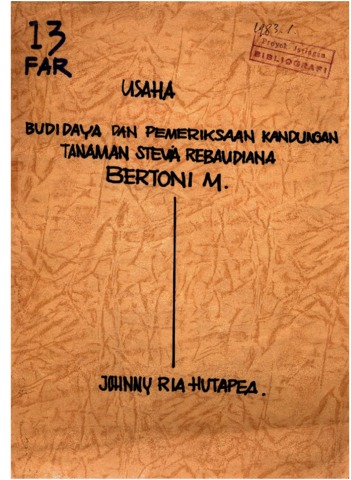 13
FAR
1983.1.
Proyek Jaringan
BIBLIOGRAFI
USAHA
BUDIDAYA DAN PEMERIKSAAN KANDUNGAN
TANAMAN STEVIA REBAUDIANA
BERTONI M.
JOHNNY RIA HUTAPEA.